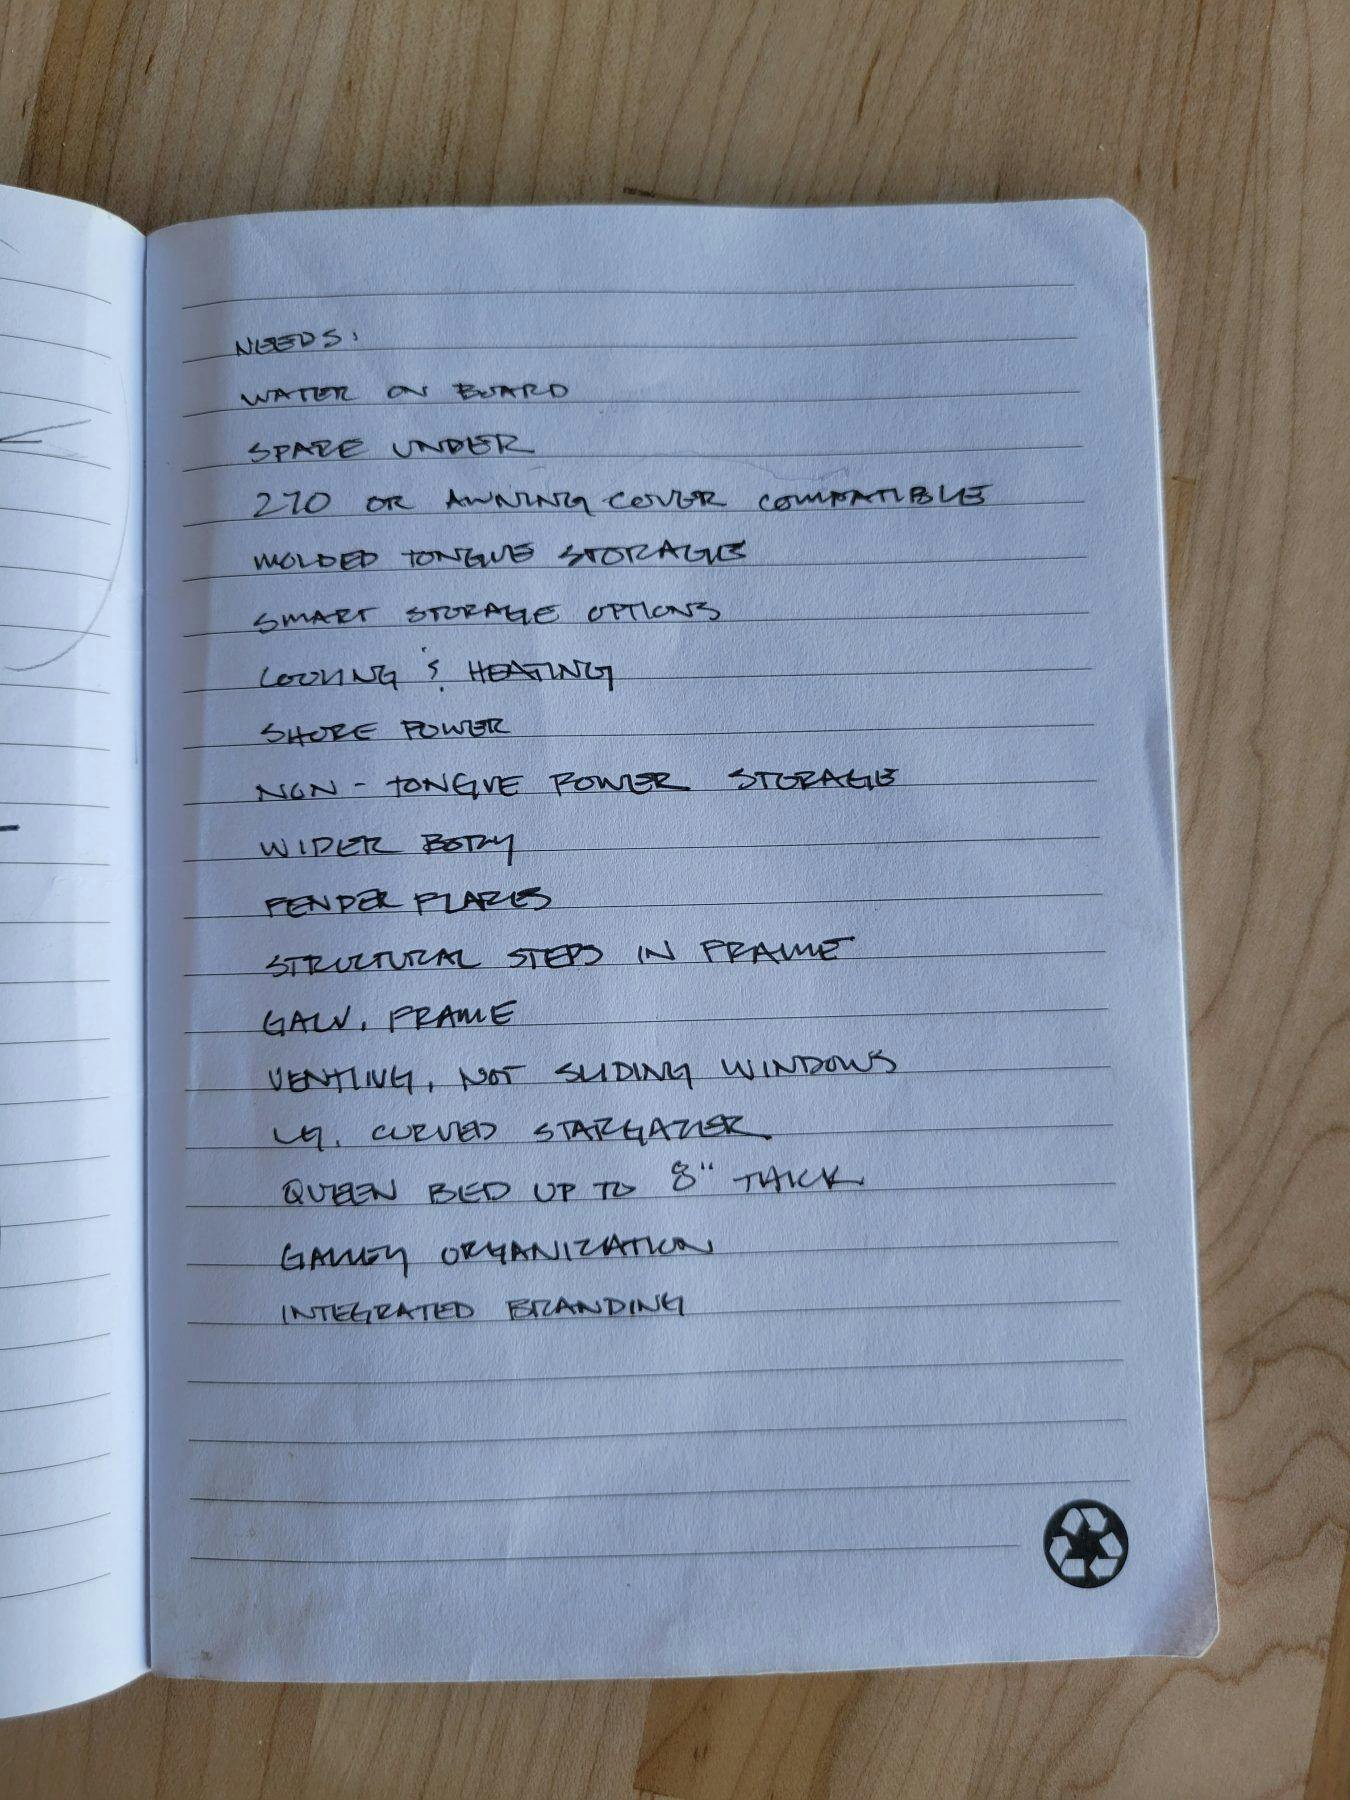 NEEDS:
WATER ON BOARD
SPARE UNDER
270 OR AWNING COVER COMPATIBLE
MOLDED TONGUE STORAGE
SMART STORAGE OPTIONS
COOLING & HEATING
SHORE POWER
NON-TONGUE POWER STORAGE
WIDER BODY
FENDER FLARES
STRUCTURAL STEPS IN FRAME
GALV. FRAME
VENTING, NOT SLIDING WINDOWS
LG. CURVED STARGAZER
QUEEN BED UP TO 8" THICK
GALLEY ORGANIZATION
INTEGRATED BRANDING